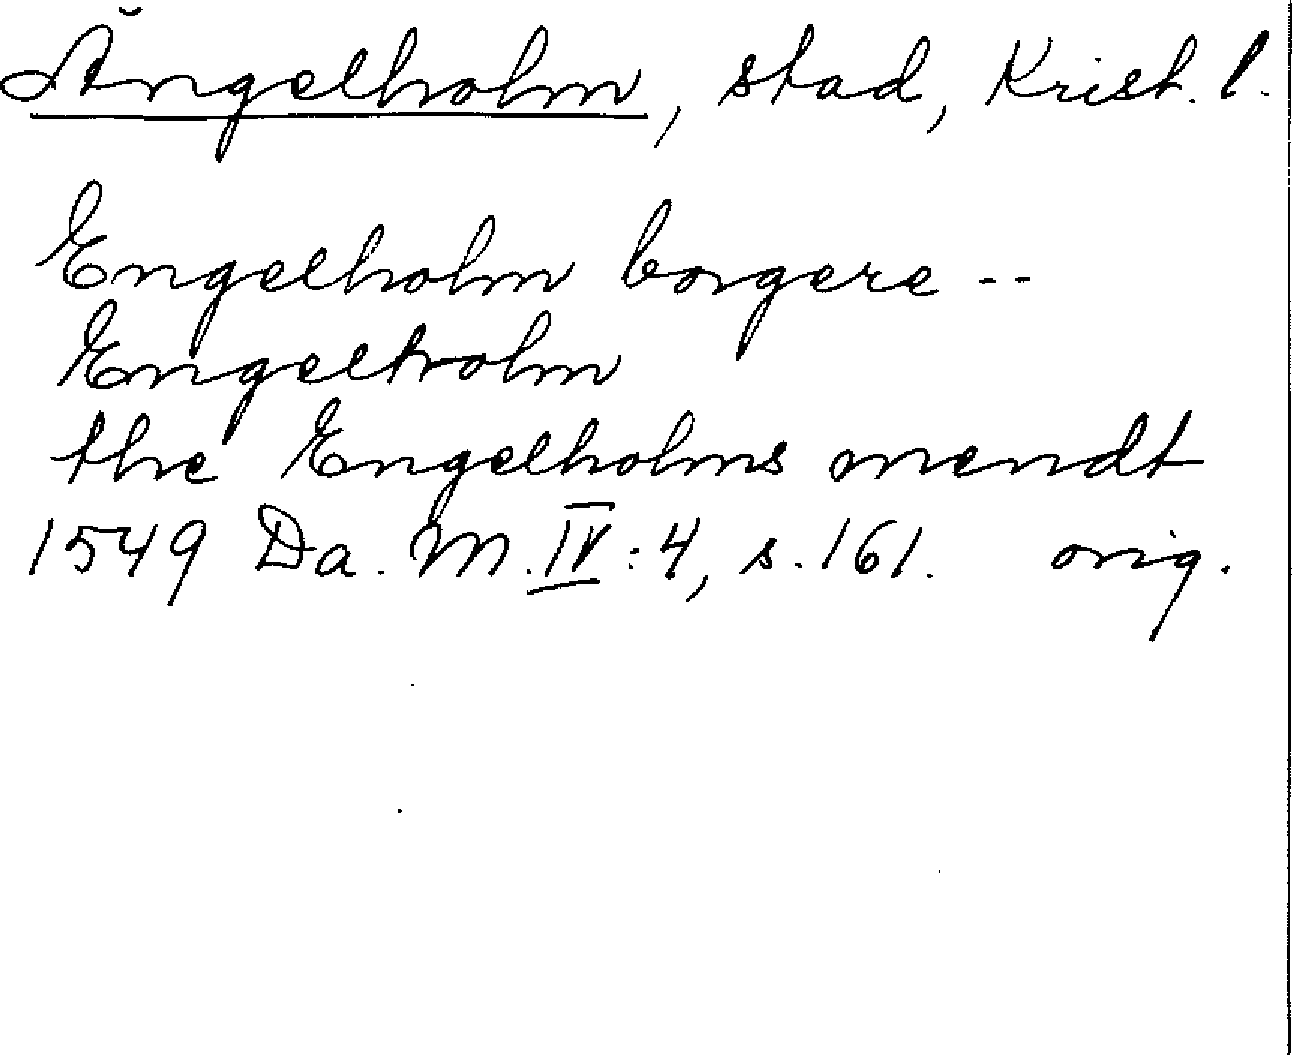 Ängelholm, stad, Krist. l.
Engelholm borgere --
Engeltrolm
the Engelholms mendt
1549 Da. M. IV: 4, s. 161. orig.